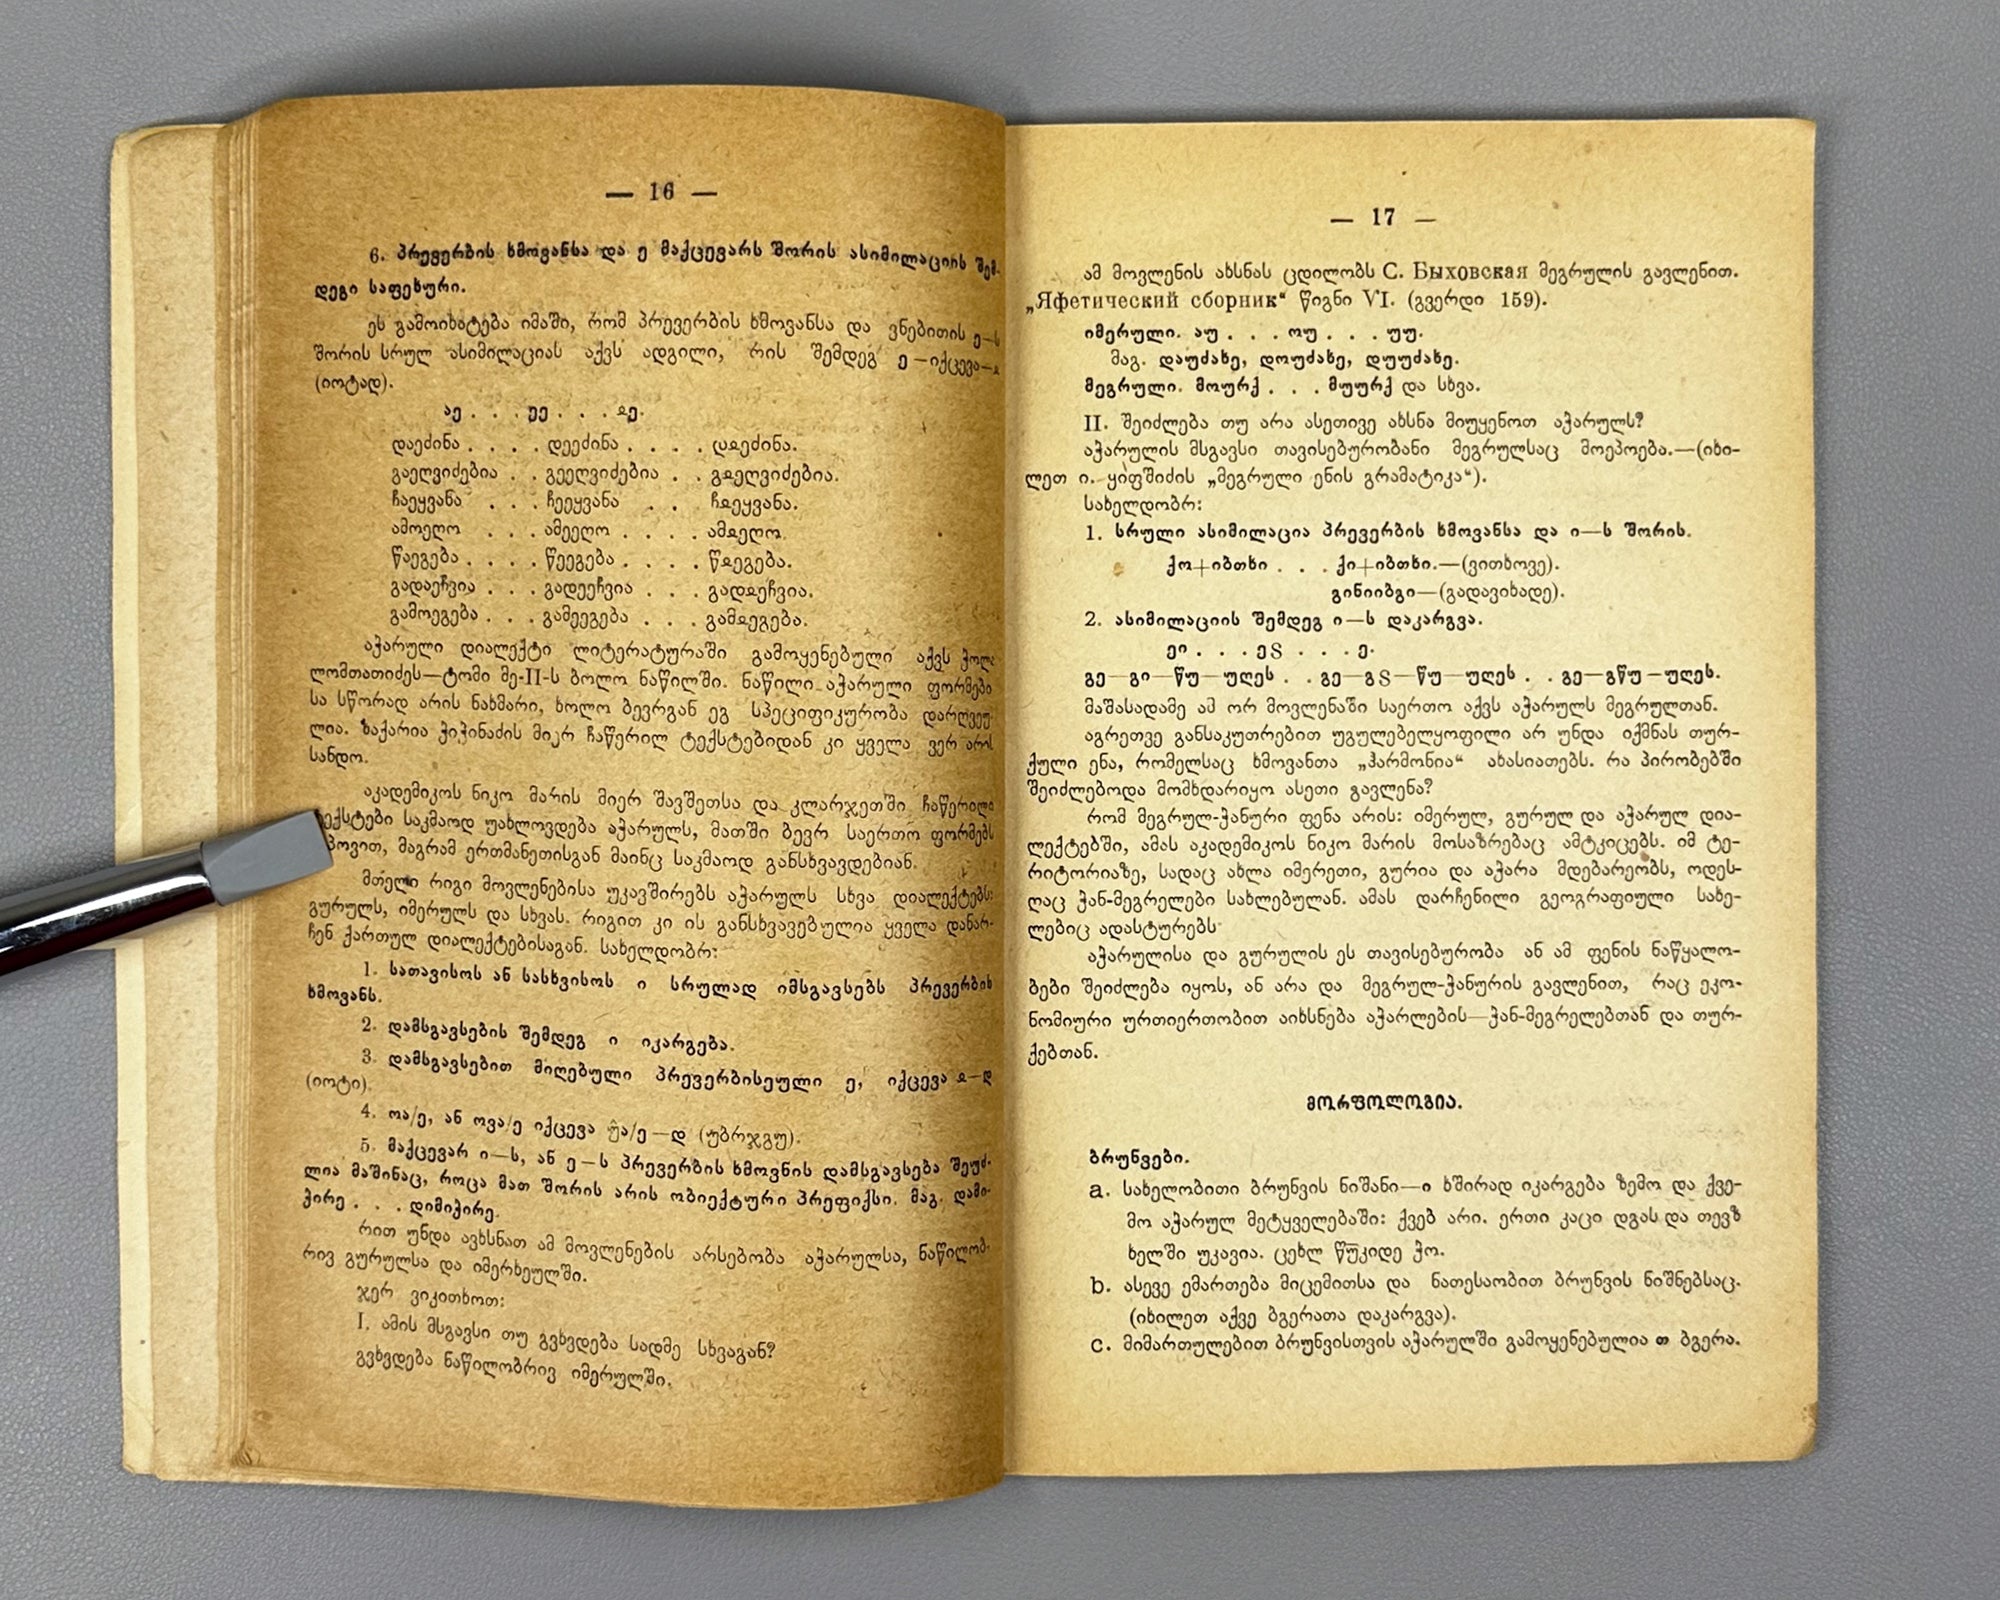 — 16 —
6. პრევერბის ხმოვანსა და ე მაქცევარს შორის ასიმილაციის შემ-
დეგი საფეხური.
ეს გამოიხატება იმაში, რომ პრევერბის ხმოვანსა და ვნებითის ე—ს
შორის სრულ ასიმილაციას აქვს ადგილი, რის შემდეგ ე—იქცევა—ჲ
(იოტად).
აე . . . ეე . . . ჲე.
დაეძინა . . . . დეეძინა . . . . დჲეძინა.
გაეღვიძებია . . გეეღვიძებია . . გჲეღვიძებია.
ჩაეყვანა . . . ჩეეყვანა . . ჩჲეყვანა.
ამოეღო . . . ამეეღო . . . . ამჲეღო.
წაეგება . . . . წეეგება . . . . წჲეგება.
გადაეჩვია . . . გადეეჩვია . . . გადჲეჩვია.
გამოეგება . . . გამეეგება . . . გამჲეგება.
აჭარული დიალექტი ლიტერატურაში გამოყენებული აქვს ჭოლა
ლომთათიძეს—ტომი მე-II-ს ბოლო ნაწილში. ნაწილი აჭარული ფორმები
სა სწორად არის ნახმარი, ხოლო ბევრგან ეგ სპეციფიკურობა დარღვეუ-
ლია. ზაქარია ჭიჭინაძის მიერ ჩაწერილ ტექსტებიდან კი ყველა ვერ არის
სანდო.
აკადემიკოს ნიკო მარის მიერ შავშეთსა და კლარჯეთში ჩაწერილი
ტექსტები საკმაოდ უახლოვდება აჭარულს, მათში ბევრ საერთო ფორმებს
ვპოვით, მაგრამ ერთმანეთისგან მაინც საკმაოდ განსხვავდებიან.
მთელი რიგი მოვლენებისა უკავშირებს აჭარულს სხვა დიალექტებს:
გურულს, იმერულს და სხვას. რიგით კი ის განსხვავებულია ყველა დანარ-
ჩენ ქართულ დიალექტებისაგან. სახელდობრ:
1. სათავისოს ან სასხვისოს ი სრულად იმსგავსებს პრევერბის
ხმოვანს.
2. დამსგავსების შემდეგ ი იკარგება.
3. დამსგავსებით მიღებული პრევერბისეული ე, იქცევა ჲ—დ
(იოტი).
4. ოა/ე, ან ოვა/ე იქცევა უ̂ა/ე—დ (უბრჯგუ).
5. მაქცევარ ი—ს, ან ე—ს პრევერბის ხმოვნის დამსგავსება შეუძ-
ლია მაშინაც, როცა მათ შორის არის ობიექტური პრეფიქსი. მაგ. დამი-
ჭირე . . . დიმიჭირე.
რით უნდა ავხსნათ ამ მოვლენების არსებობა აჭარულსა, ნაწილობ-
რივ გურულსა და იმერხეულში.
ჯერ ვიკითხოთ:
I. ამის მსგავსი თუ გვხვდება სადმე სხვაგან?
გვხვდება ნაწილობრივ იმერულში.
— 17 —
ამ მოვლენის ახსნას ცდილობს С. Быховская მეგრულის გავლენით.
„Яфетический сборник“ წიგნი VI. (გვერდი 159).
იმერული. აუ . . . ოუ . . . უუ.
მაგ. დაუძახე, დოუძახე, დუუძახე.
მეგრული. მოურქ . . . მუურქ და სხვა.
II. შეიძლება თუ არა ასეთივე ახსნა მიუყენოთ აჭარულს?
აჭარულის მსგავსი თავისებურობანი მეგრულსაც მოეპოება.—(იხი-
ლეთ ი. ყიფშიძის „მეგრული ენის გრამატიკა“).
სახელდობრ:
1. სრული ასიმილაცია პრევერბის ხმოვანსა და ი—ს შორის.
ქო+იბთხი . . . ქი+იბთხი.—(ვითხოვე).
გინიიბგი—(გადავიხადე).
2. ასიმილაციის შემდეგ ი—ს დაკარგვა.
ეი . . . ეS . . . ე.
გე—გი—წუ—უღეს . . გე—გS—წუ—უღეს . . გე—გწუ—უღეს.
მაშასადამე ამ ორ მოვლენაში საერთო აქვს აჭარულს მეგრულთან.
აგრეთვე განსაკუთრებით უგულებელყოფილი არ უნდა იქმნას თურ-
ქული ენა, რომელსაც ხმოვანთა „ჰარმონია“ ახასიათებს. რა პირობებში
შეიძლებოდა მომხდარიყო ასეთი გავლენა?
რომ მეგრულ-ჭანური ფენა არის: იმერულ, გურულ და აჭარულ დია-
ლექტებში, ამას აკადემიკოს ნიკო მარის მოსაზრებაც ამტკიცებს. იმ ტე-
რიტორიაზე, სადაც ახლა იმერეთი, გურია და აჭარა მდებარეობს, ოდეს-
ღაც ჭან-მეგრელები სახლებულან. ამას დარჩენილი გეოგრაფიული სახე-
ლებიც ადასტურებს
აჭარულისა და გურულის ეს თავისებურობა ან ამ ფენის ნაწყალო-
ბები შეიძლება იყოს, ან არა და მეგრულ-ჭანურის გავლენით, რაც ეკო-
ნომიური ურთიერთობით აიხსნება აჭარლების—ჭან-მეგრელებთან და თურ-
ქებთან.
მორფოლოგია.
ბრუნვები.
a. სახელობითი ბრუნვის ნიშანი—ი ხშირად იკარგება ზემო და ქვე-
მო აჭარულ მეტყველებაში: ქვებ არი. ერთი კაცი დგას და თევზ
ხელში უკავია. ცეხლ წუკიდე ჭო.
b. ასევე ემართება მიცემითსა და ნათესაობით ბრუნვის ნიშნებსაც.
(იხილეთ აქვე ბგერათა დაკარგვა).
c. მიმართულებით ბრუნვისთვის აჭარულში გამოყენებულია თ ბგერა.